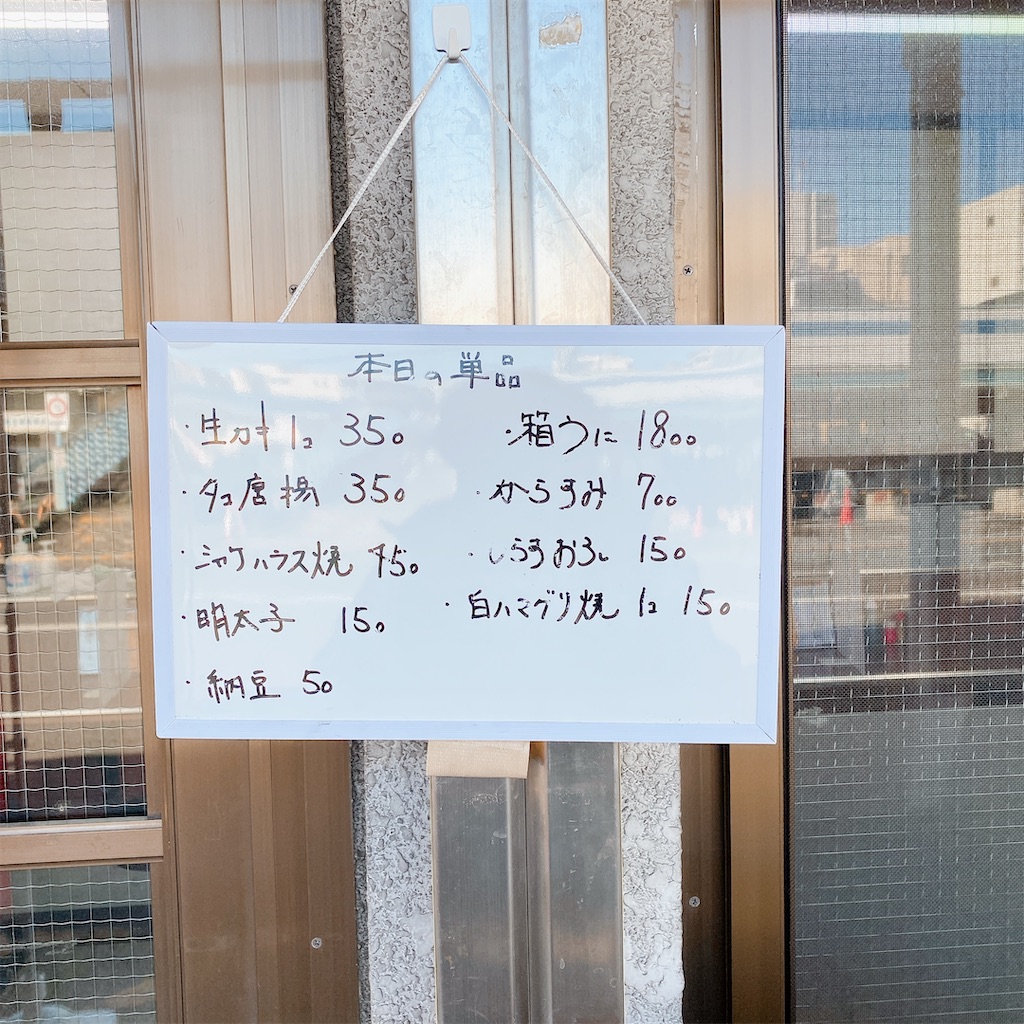 本日の単品
・生カキ 1コ 350
・タコ唐揚 350
・シャケハラス焼 450
・明太子 150
・納豆 50
・箱うに 1800
・からすみ 700
・しらすおろし 150
・白ハマグリ焼 1コ 150